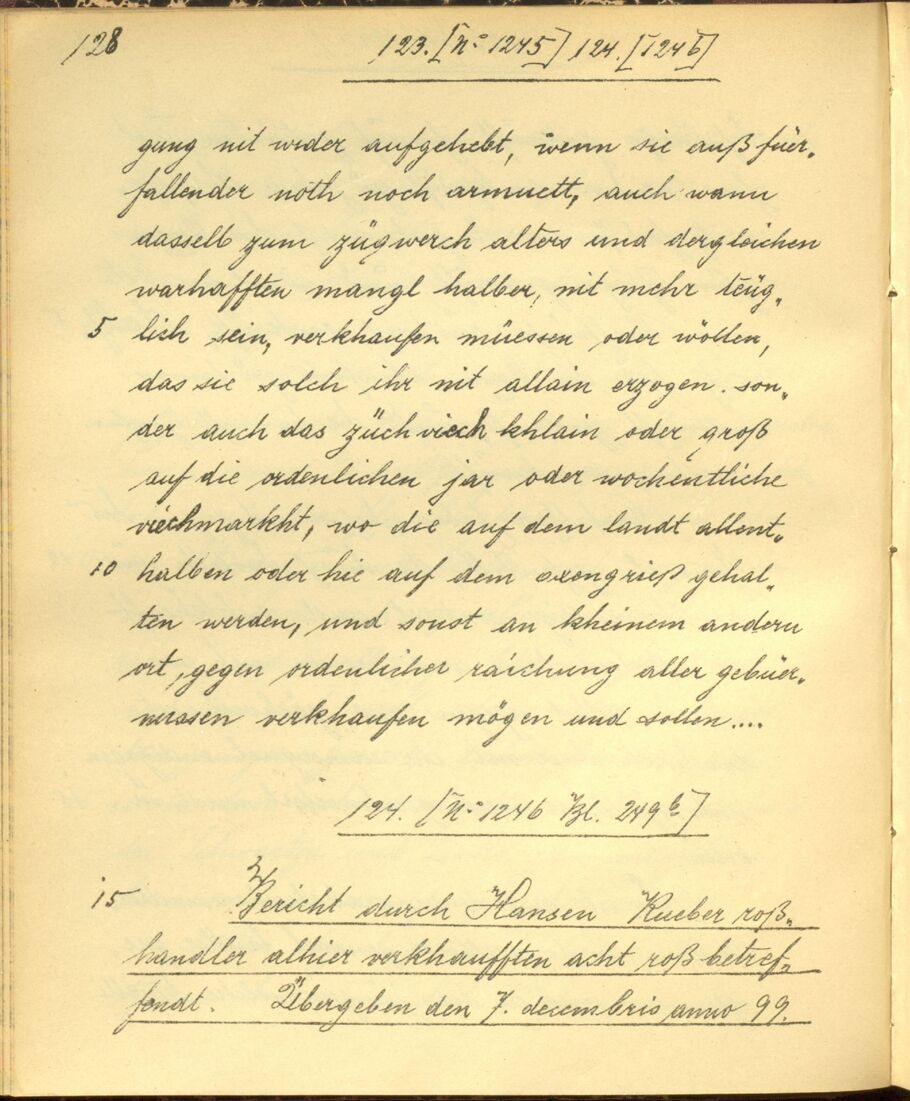 128
123. [No 1245] 124. [1246]
gung nit wider aufgehebt, wenn sie auß fuer„
fallender noth noch armuett, auch wann
dasselb zum zügwerch alters und dergleichen
warhafften mangl halber, nit mehr teüg„
5 lich sein, verkhaufen müessen oder wöllen,
das sie solch ihr nit allain erzogen . son„
der auch das züchviech khlain oder groß
auf die ordenlichen jar oder wochentliche
viechmarkht, wo die auf dem landt allent„
10 halben oder hie auf dem oxengrieß gehal„
ten werden, und sonst an kheinem andern
ort, gegen ordenlicher raichung aller gebüer„
nussen verkhaufen mögen und sollen....
124. [No 1246 Bl. 249b]
15 Bericht durch Hansen Kueber roß„
handler alhier verkhaufften acht roß betref„
fendt. Übergeben den 7. decembris anno 99.